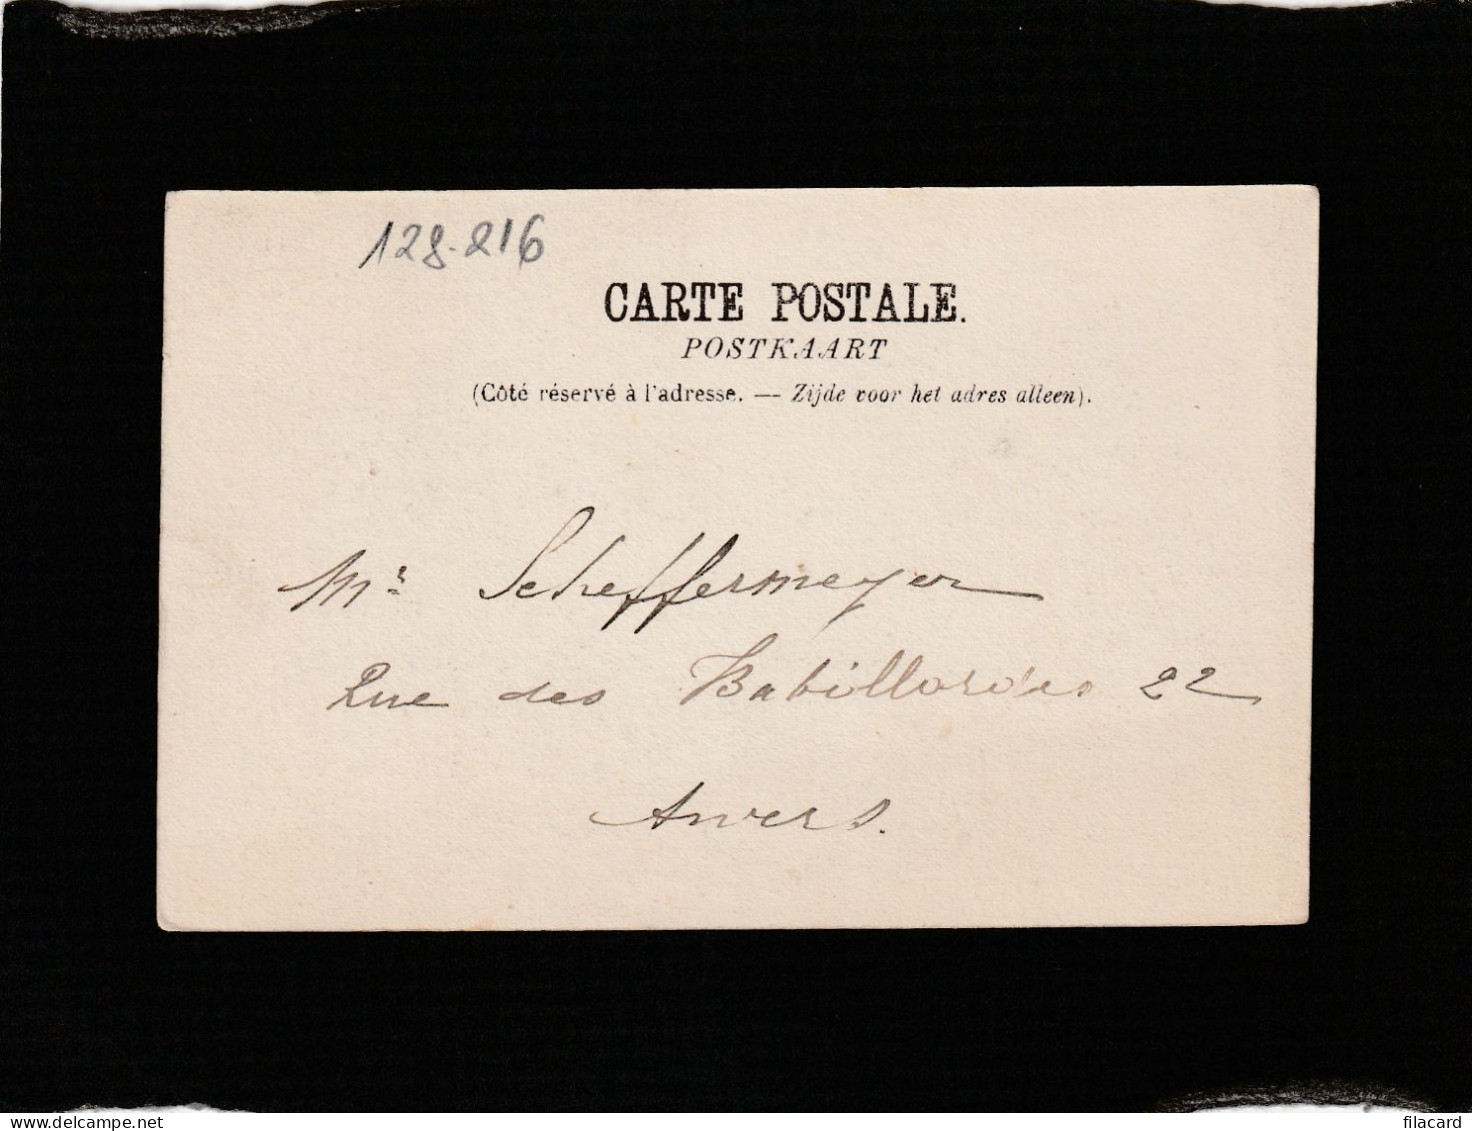 128-216
CARTE POSTALE.
POSTKAART
(Côté réservé à l'adresse. — Zijde voor het adres alleen).
Mr Scheffermeyer
Rue des Babillardes 22
Anvers.
delcampe.net
filacard